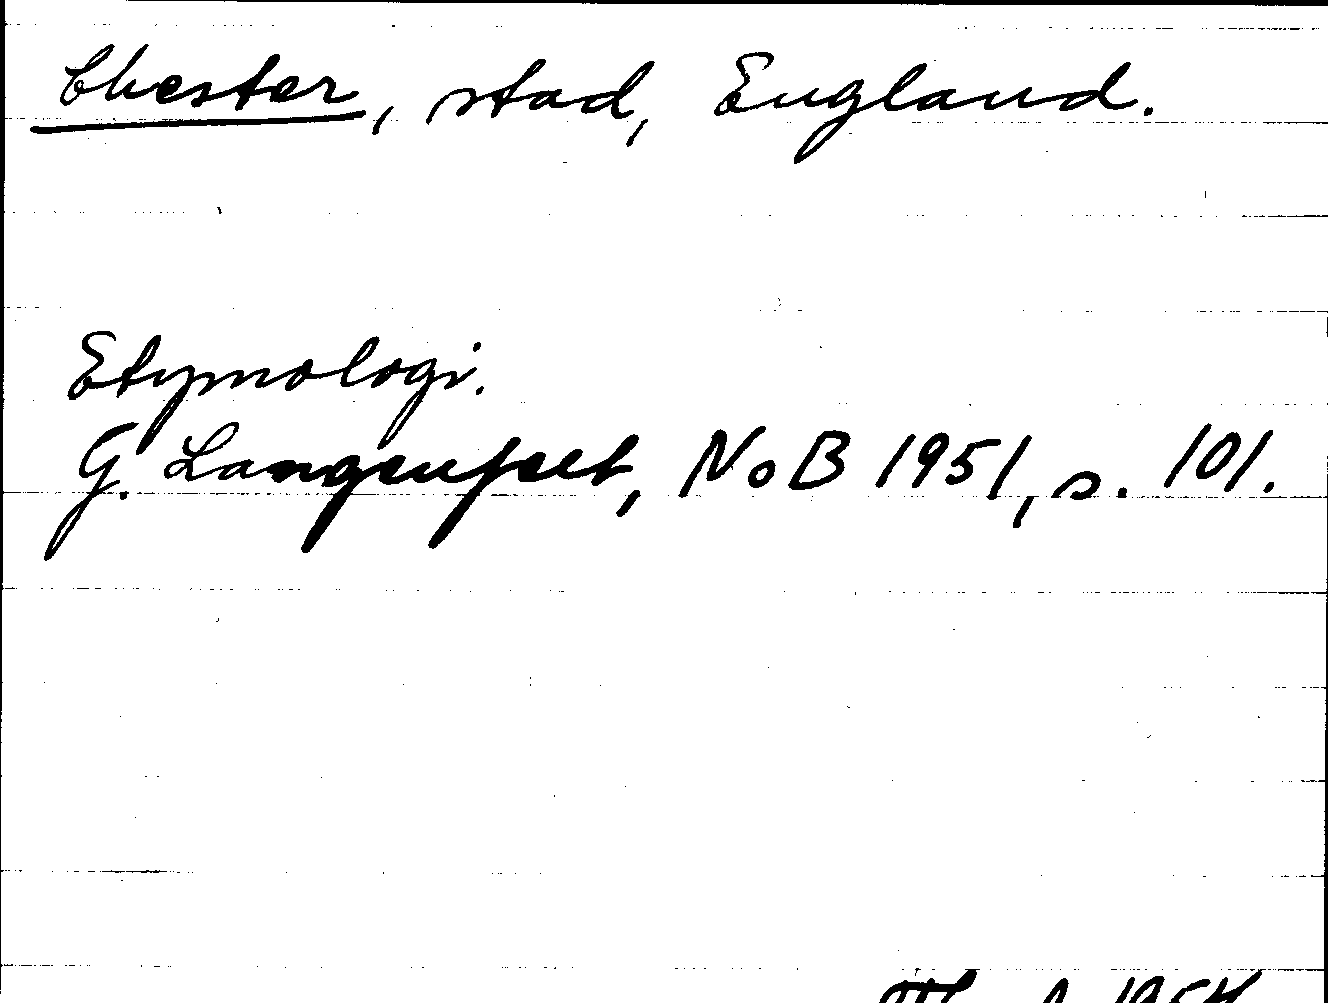 Chester, stad, England.
Etymologi.
G. Langenfelt, NoB 1951, s. 101.